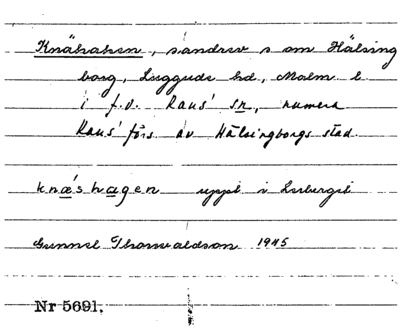 Knähaken, sandrev s om Hälsing
borg, Luggude hd, Malm l.
i f.d. Raus' sn, numera
Raus' förs av Hälsingborgs stad.
knǽshagen uppt i
Gunnel Thorvaldson 1945
Nr 5691.